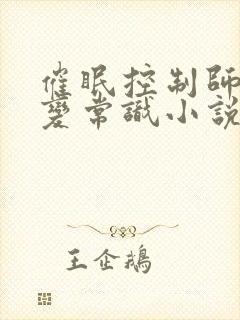 催眠控制師
變常識小說
王企鵝